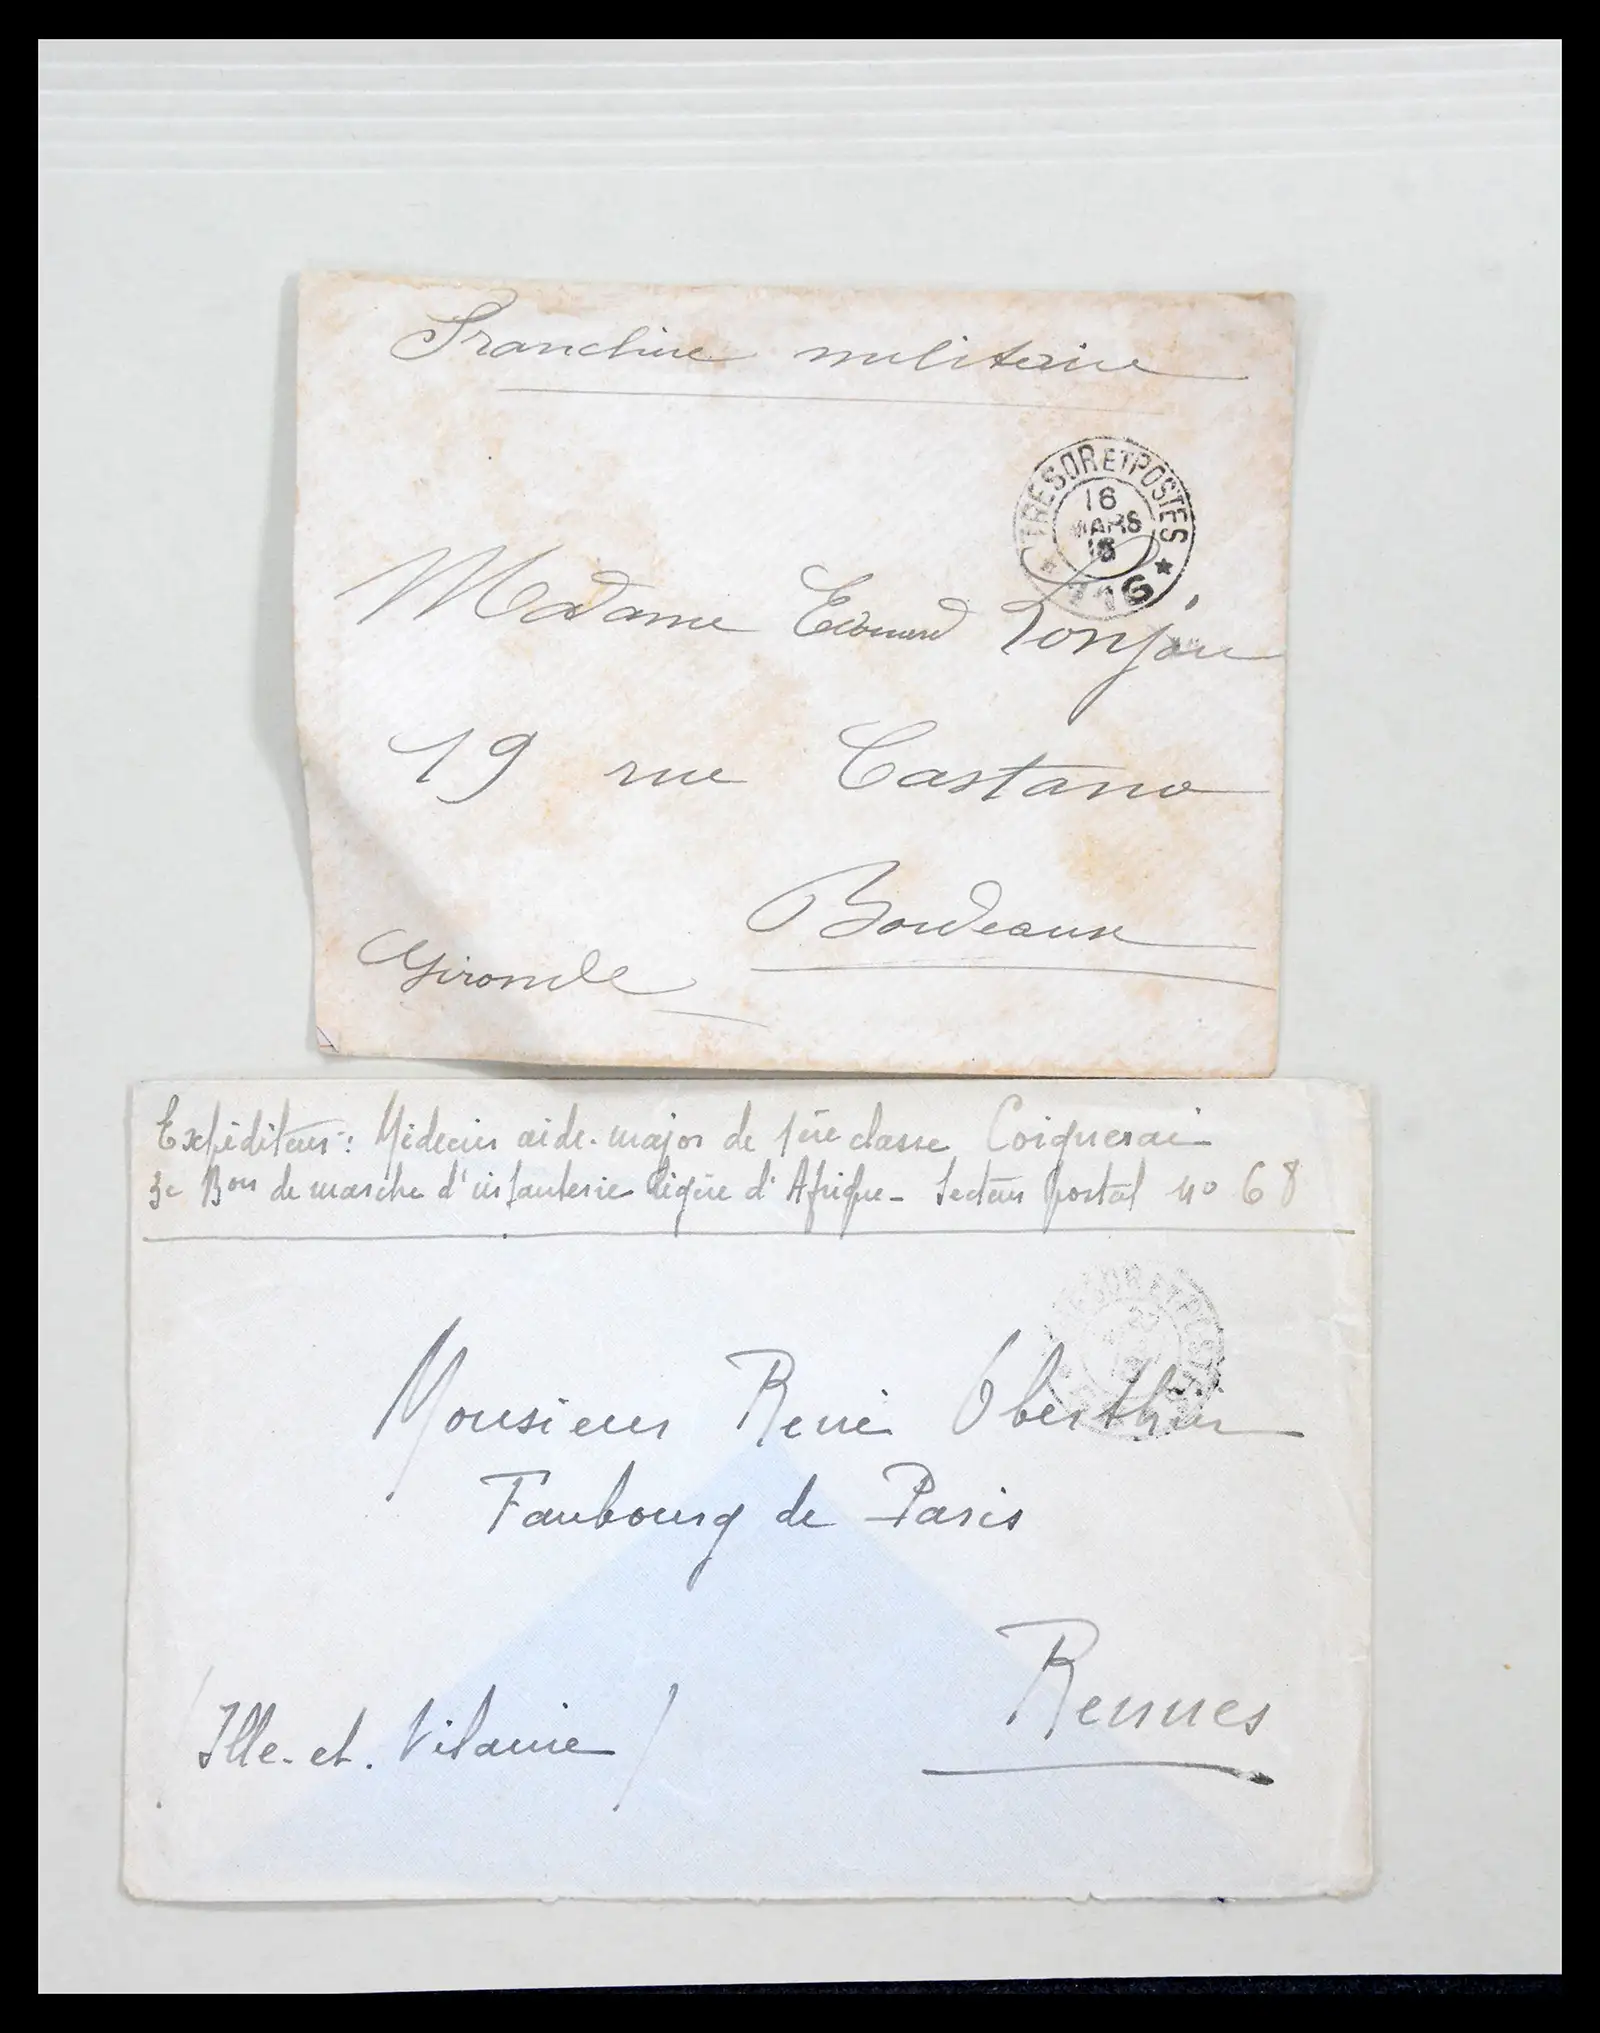 Franchise militaire
TRESOR ET POSTES
16
MARS
* *
Madame Edouard
19 rue Castano
Bordeaux
Gironde
Expéditeur : Médecin aide-major de 1ère classe Coiquerai
3e Bon de marche d'infanterie légère d'Afrique - Secteur postal no 68
Monsieur René Oberthür
Faubourg de Paris
Rennes
Ille-et-Vilaine